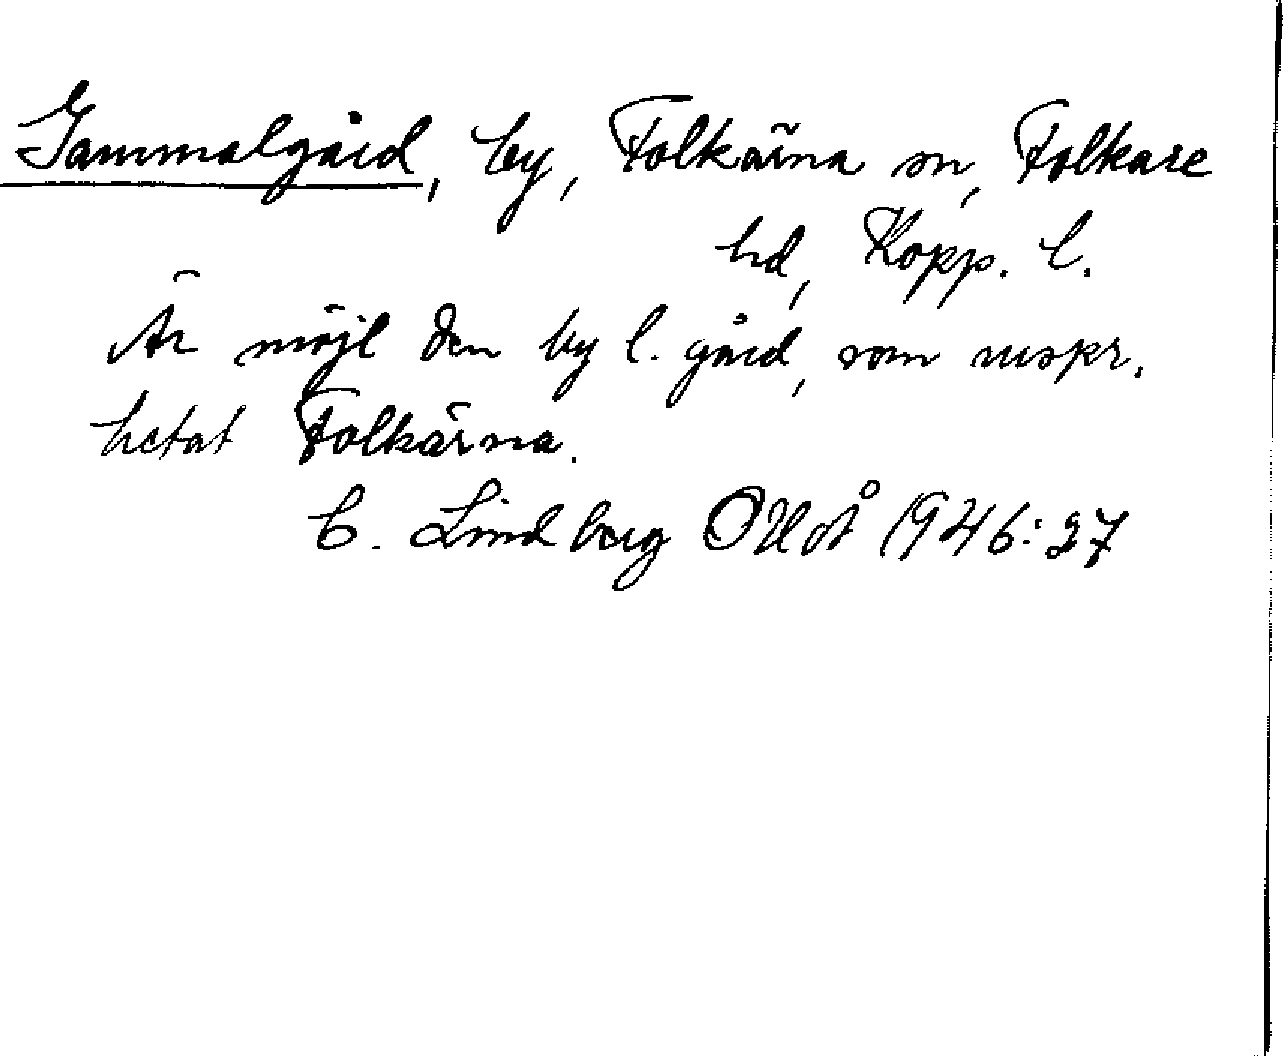 Gammalgård, by, Folkärna sn, Folkare
hd, Kopp. l.
Är möjl den by l. gård, som urspr.
hetat Folkärna.
C. Lindberg OUÅ 1946:27